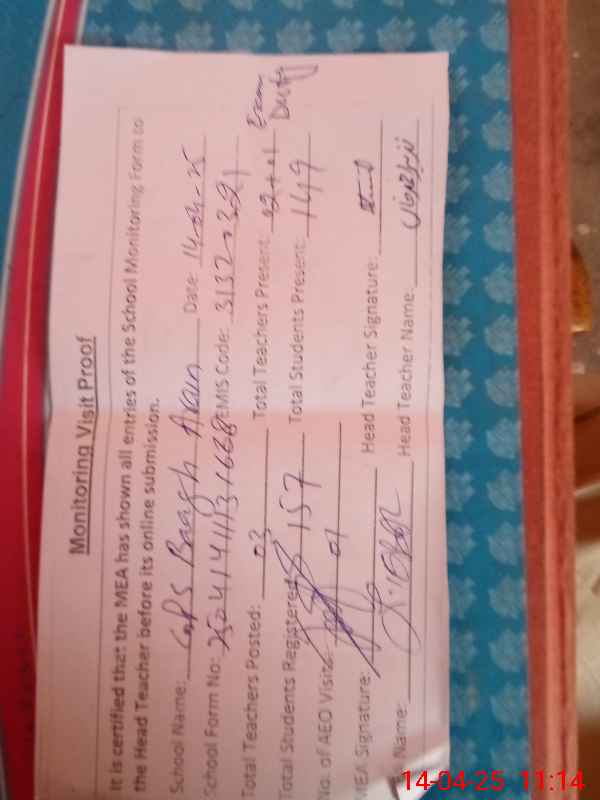 Monitoring Visit Proof
It is certified that the MEA has shown all entries of the School Monitoring Form to
the Head Teacher before its online submission.
School Name: GPS Baagh Arain Date: 14-04-25
School Form No: EMIS Code:
Total Teachers Posted: 03 Total Teachers Present: 02+01 Exam Duty
Total Students Registered: 157 Total Students Present: 149
No. of AEO Visits: 01
MEA Signature: Head Teacher Signature:
Name: Head Teacher Name:
14-04-25 11:14